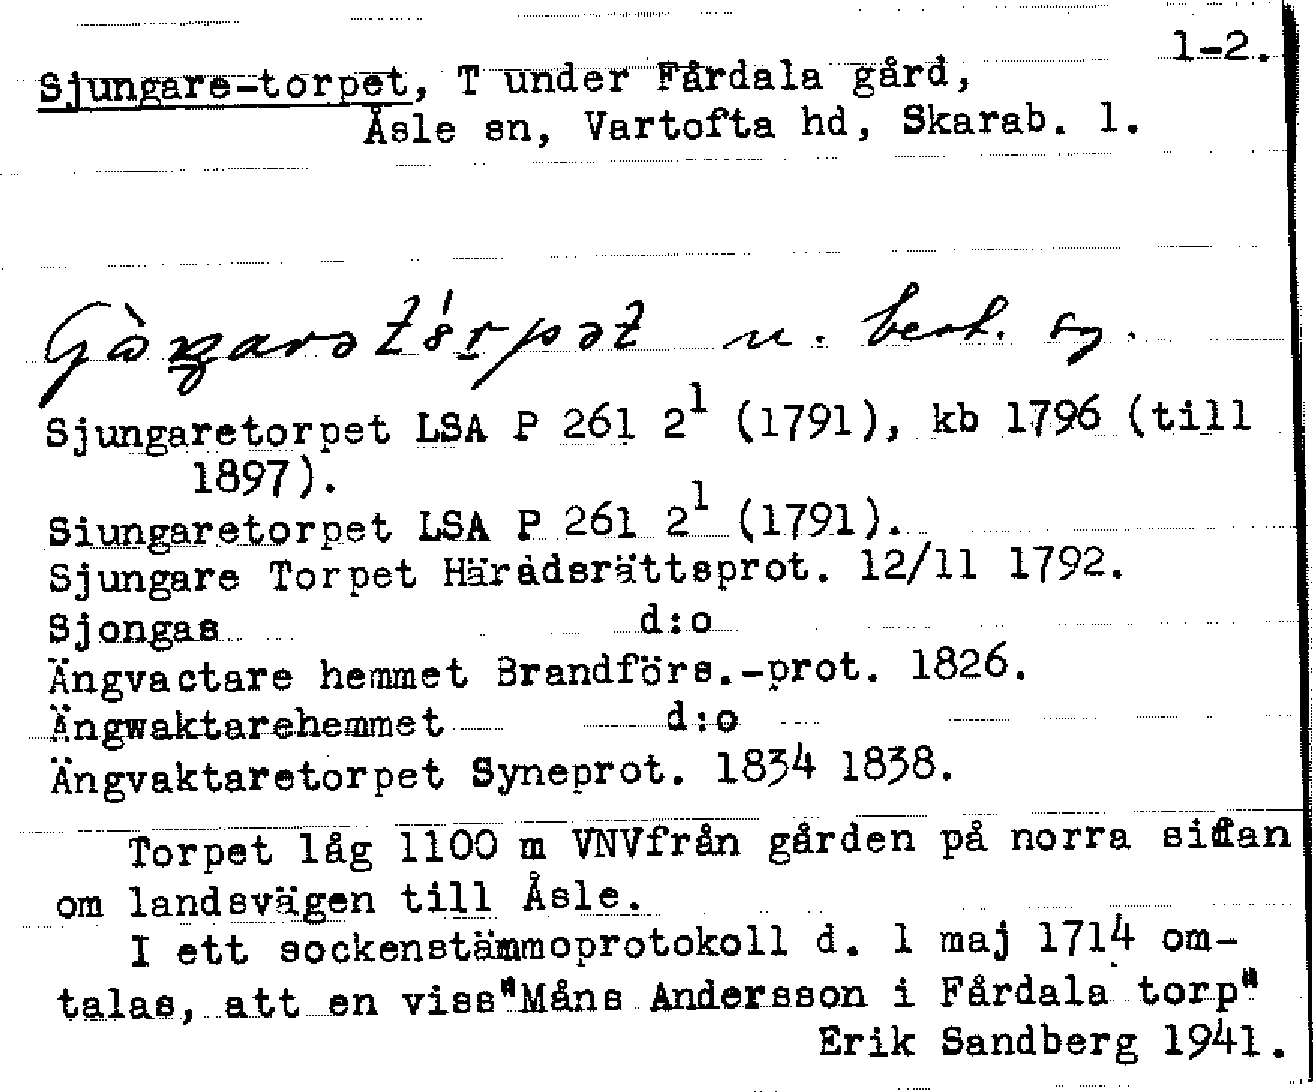 1-2.
Sjungare-torpet, T under Fårdala gård,
Åsle sn, Vartofta hd, Skarab. l.
n. best. sg.
Sjungaretorpet LSA P 261 2¹ (1791), kb 1796 (till
1897).
Siungaretorpet LSA P 261 2¹ (1791).
Sjungare Torpet Häradsrättsprot. 12/11 1792.
Sjongas d:o
Ängvactare hemmet Brandförs.-prot. 1826.
Ängwaktarehemmet d:o
Ängvaktaretorpet Syneprot. 1834 1838.
Torpet låg 1100 m VNVfrån gården på norra sidan
om landsvägen till Åsle.
I ett sockenstämmoprotokoll d. 1 maj 1714 om-
talas, att en viss"Måns Andersson i Fårdala torp"
Erik Sandberg 1941.